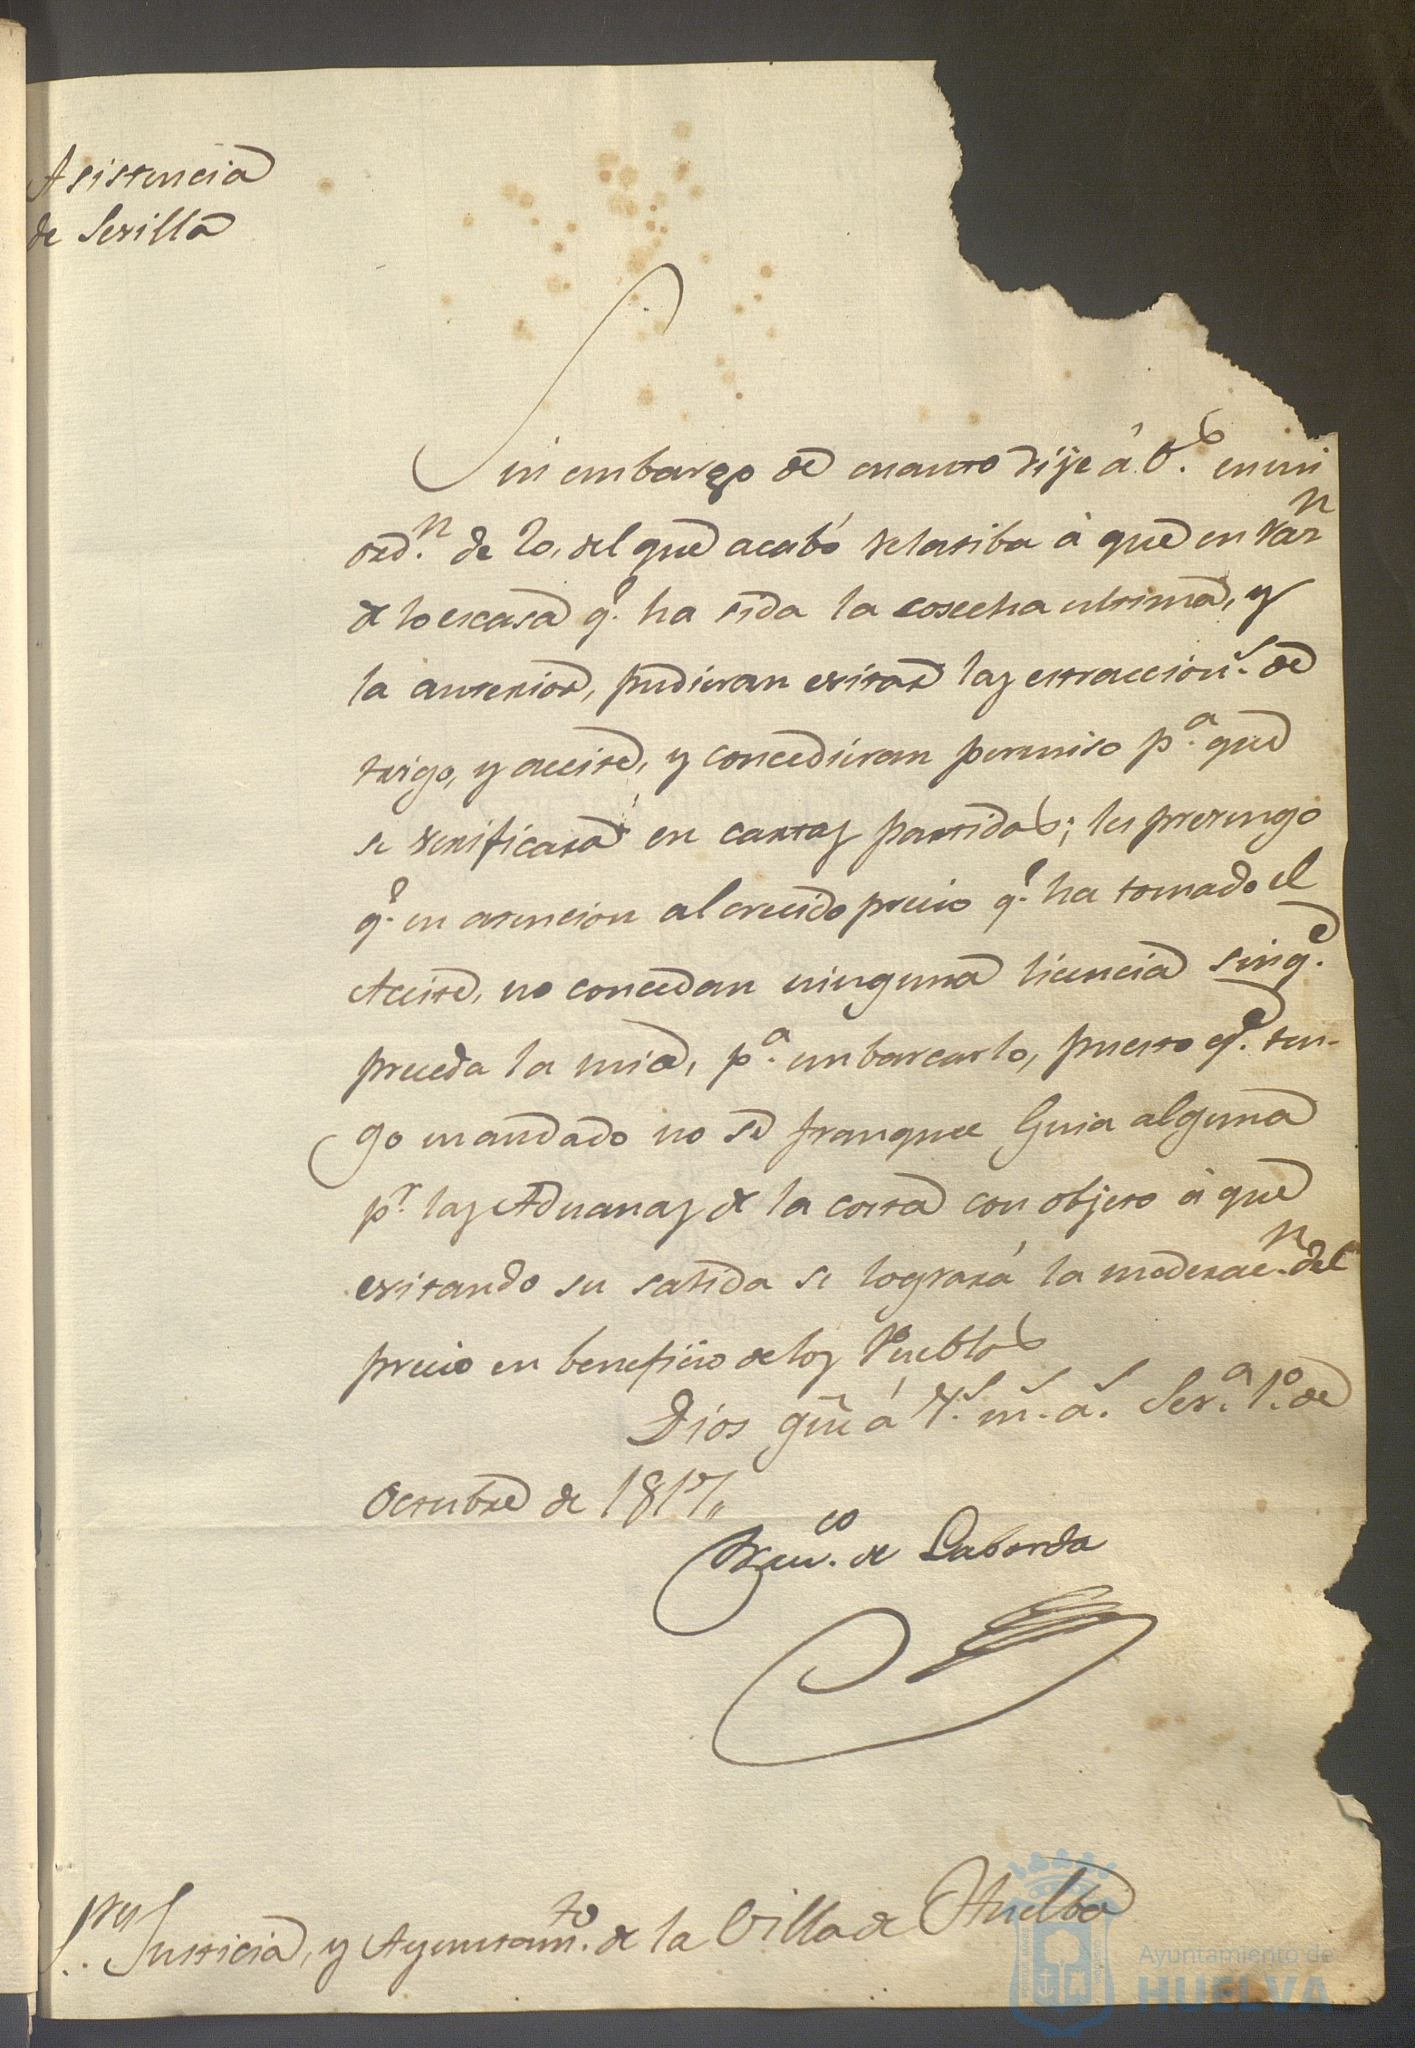 Asistencia
de Sevilla
Sin embargo de cuanto dije á V.s en mi
ord.n de 20, del que acabó relatiba à que en raz.n
de lo escasa q.e ha sida la cosecha ultima, y
la anterior, pudieran evitar las estraccion.s de
trigo, y aceite, y concedieran permiso p.a que
se verificará en cortas partidas; les prevengo
q.e en atencion al crecido precio q.e ha tomado el
Aceite, no concedan ninguna licencia sin q.e
preceda la mia, p.a embarcarlo, puesto q.e ten-
go mandado no se franquee Guia alguna
p.r las Aduanas de la costa con objeto à que
evitando su salida se logrará la moderac.n del
precio en beneficio de los Pueblos
Dios gũe á V.s m.s a.s Sev.a 1.o de
Octubre de 1817,,
Fran.co de Laborda
S.res Justicia, y Ayuntam.to de la Villa de Huelba
Ayuntamiento de
HUELVA